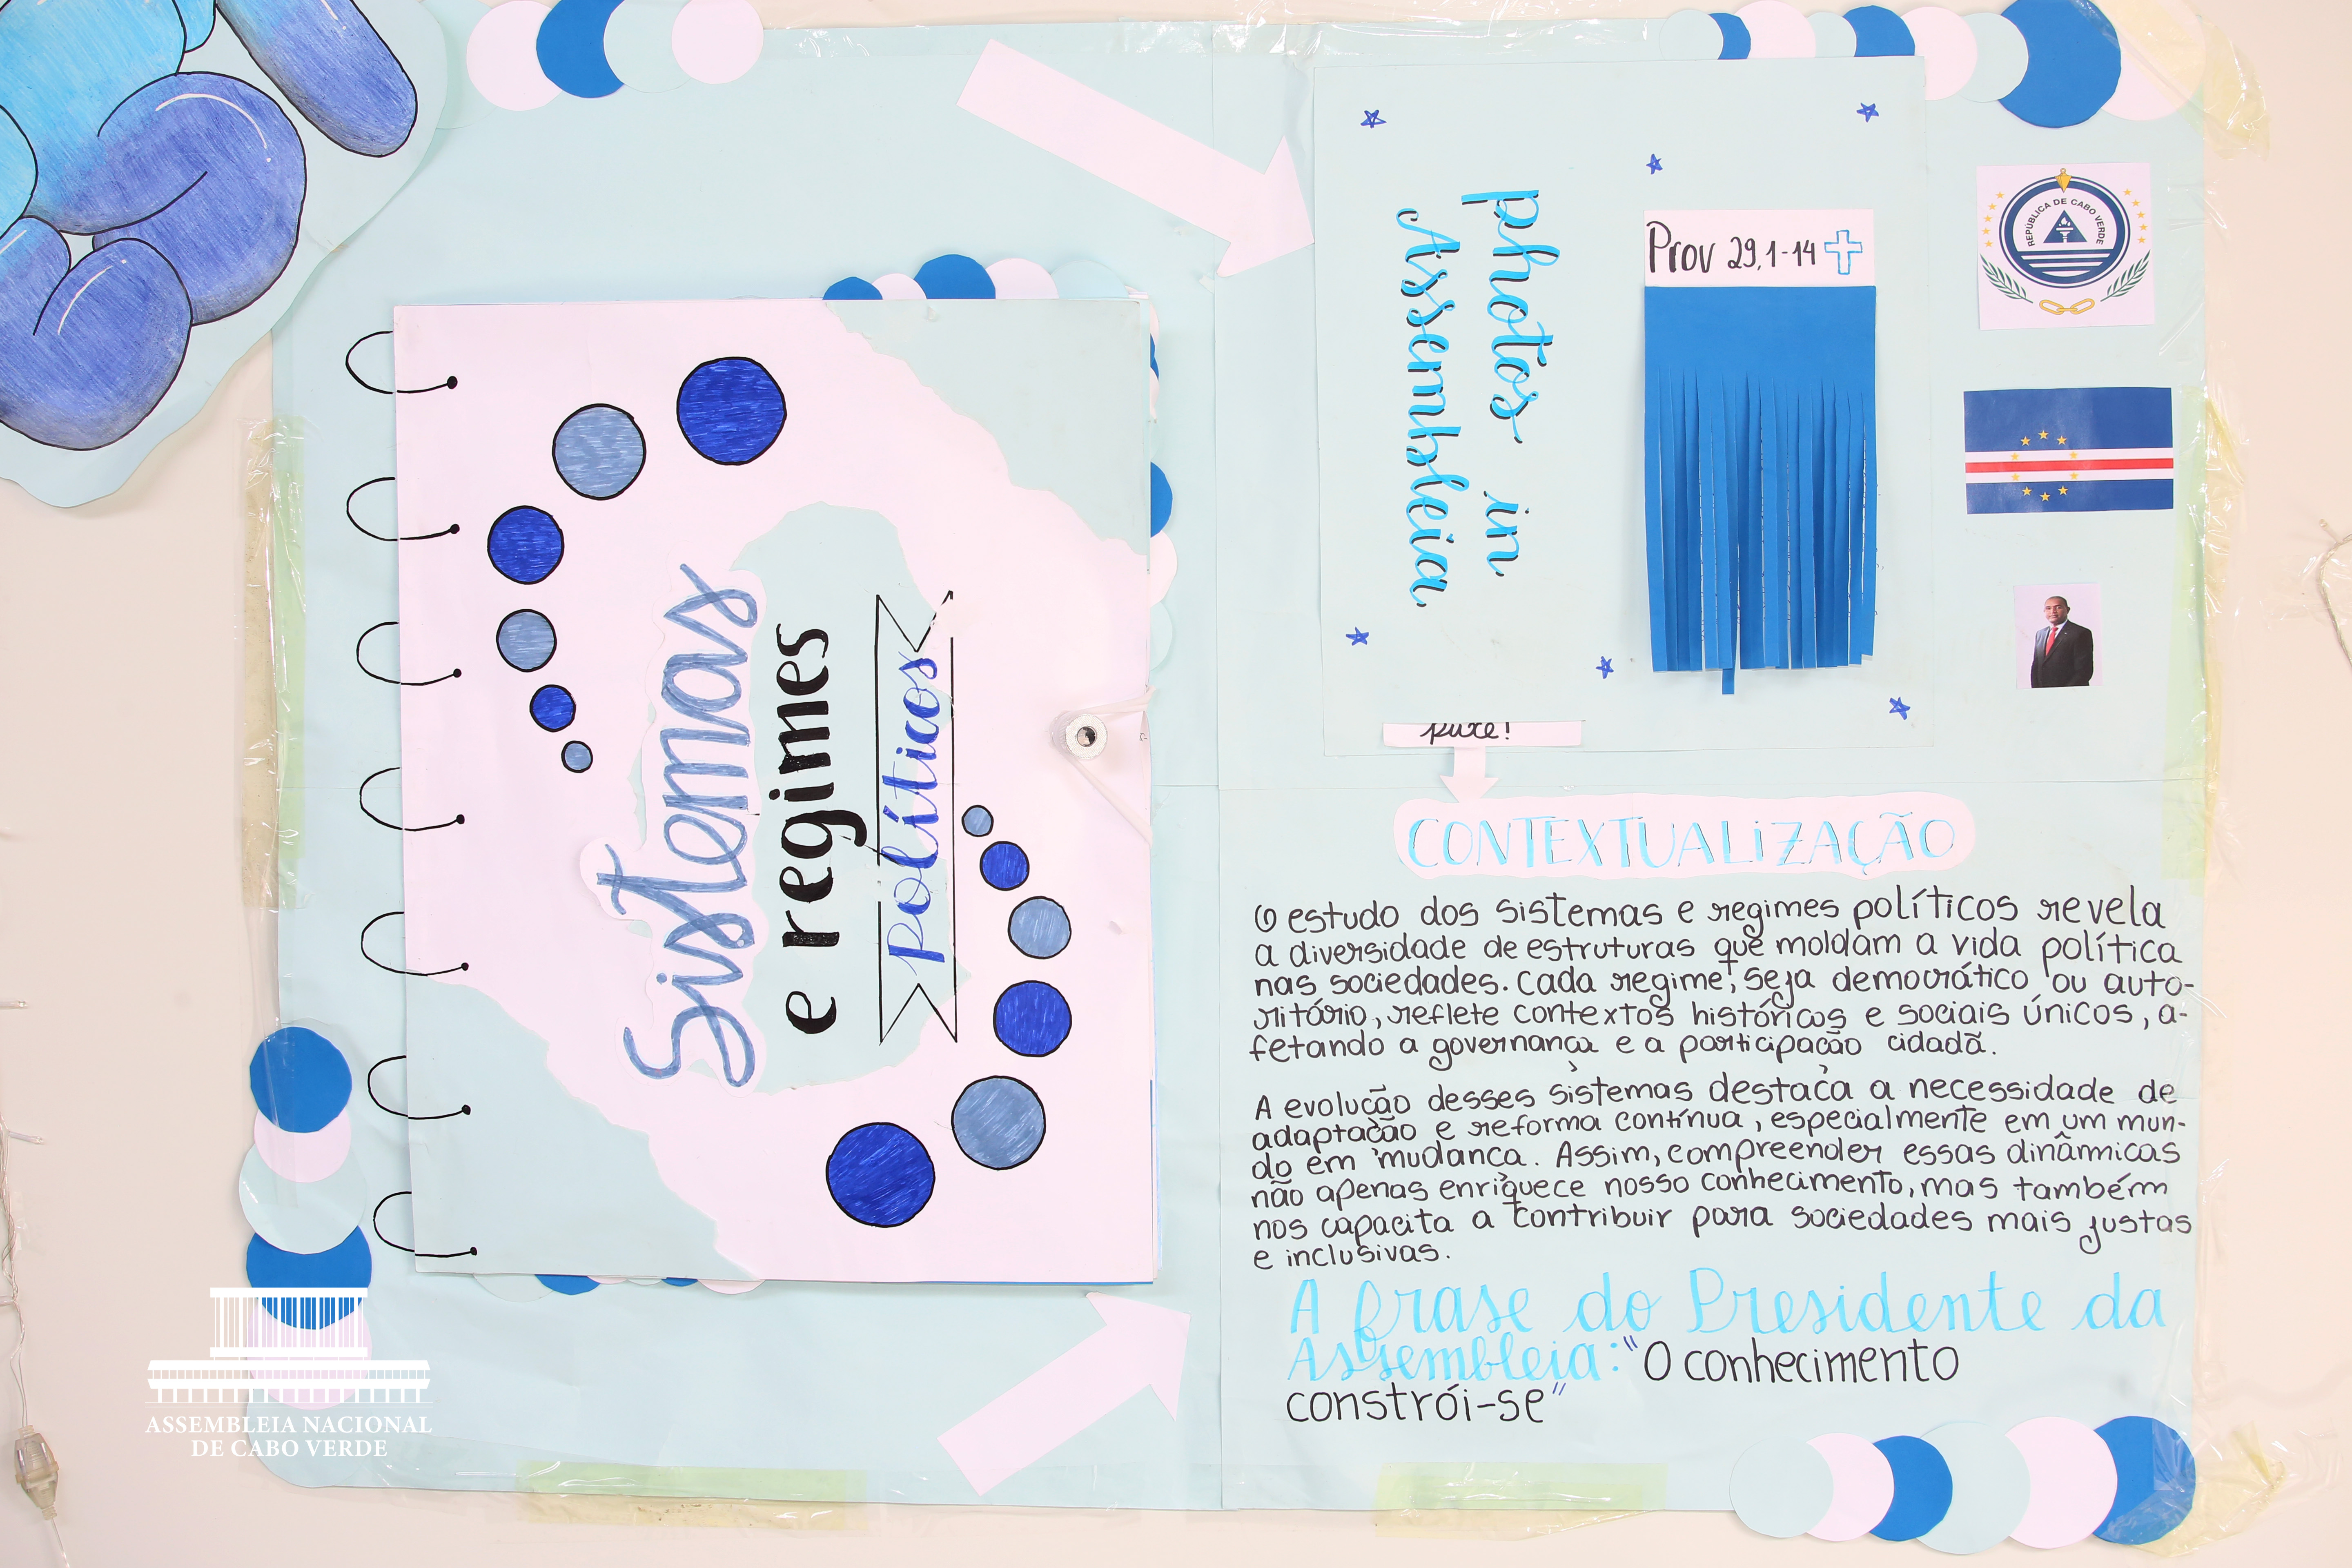 Sistemas
e regimes
políticos
photos in
Assembleia
puxe!
Prov 29,1-14
REPÚBLICA DE CABO VERDE
CONTEXTUALIZAÇÃO
O estudo dos sistemas e regimes políticos revela
a diversidade de estruturas que moldam a vida política
nas sociedades. Cada regime, seja democrático ou auto-
ritário, reflete contextos históricos e sociais únicos, a-
fetando a governança e a participação cidadã.
A evolução desses sistemas destaca a necessidade de
adaptação e reforma contínua, especialmente em um mun-
do em mudança. Assim, compreender essas dinâmicas
não apenas enriquece nosso conhecimento, mas também
nos capacita a contribuir para sociedades mais justas
e inclusivas.
A frase do Presidente da
Assembleia: "O conhecimento
constrói-se"
ASSEMBLEIA NACIONAL
DE CABO VERDE